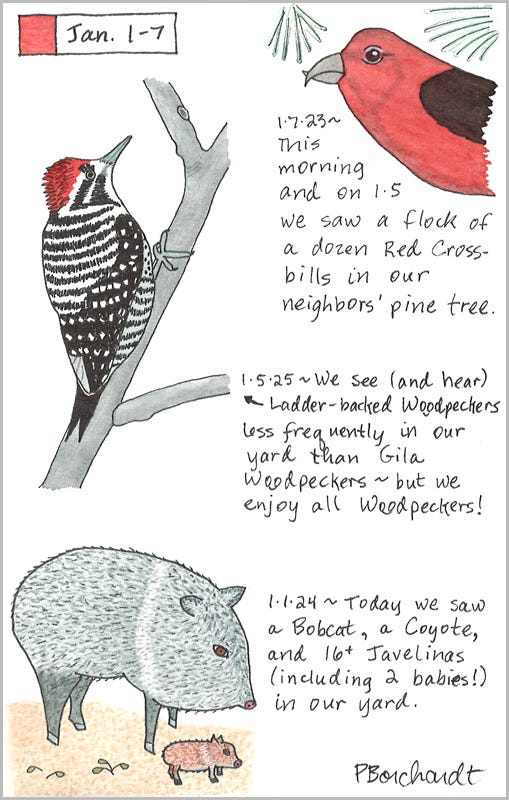 Jan. 1-7
1·7·23~
This
morning
and on 1·5
we saw a flock of
a dozen Red Cross-
bills in our
neighbors' pine tree.
1·5·25~We see (and hear)
Ladder-backed Woodpeckers
less frequently in our
yard than Gila
Woodpeckers ~ but we
enjoy all Woodpeckers!
1·1·24~Today we saw
a Bobcat, a Coyote,
and 16+ Javelinas
(including 2 babies!)
in our yard.
PBorchardt